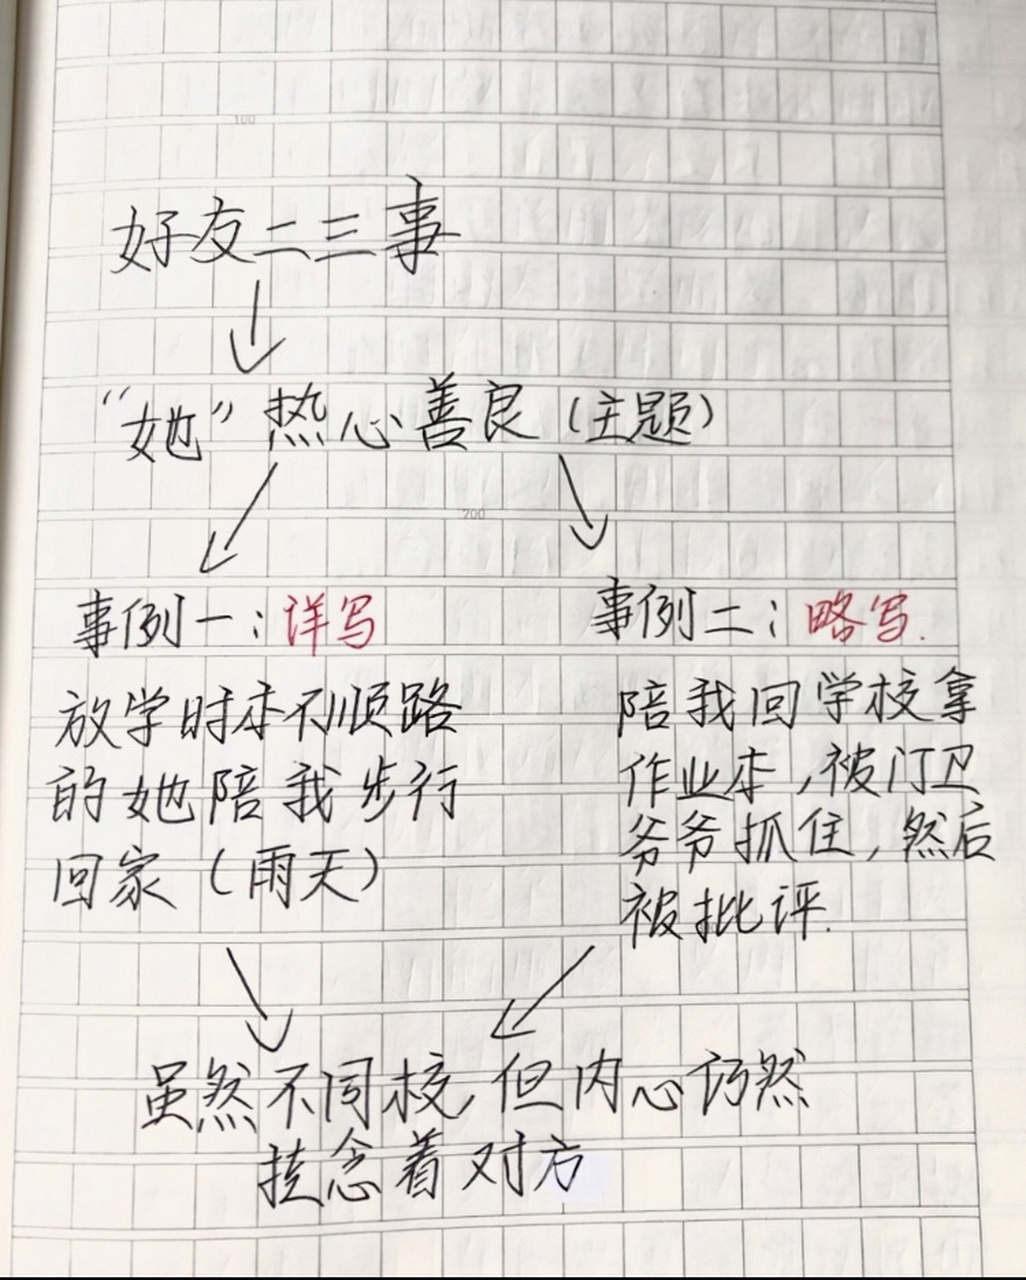 100
好友二三事
“她”热心善良(主题)
200
事例一:详写
放学时本不顺路
的她陪我步行
回家(雨天)
事例二:略写.
陪我回学校拿
作业本,被门卫
爷爷抓住,然后
被批评.
虽然不同校,但内心仍然
挂念着对方